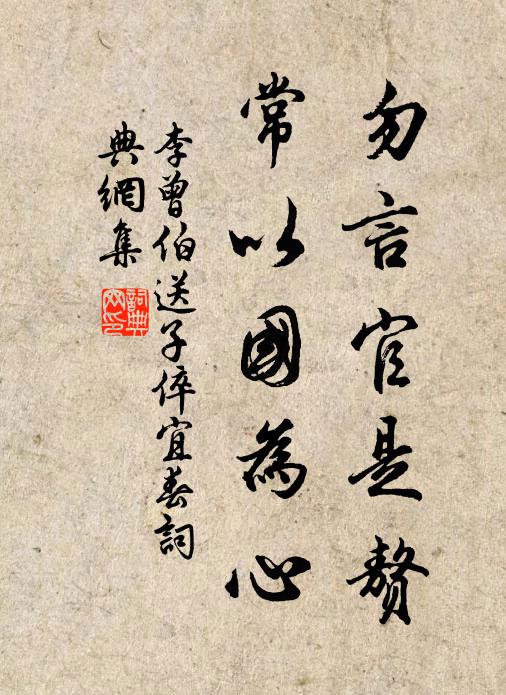 勿言官是贅
常以國為心
李曾伯送子倅宜春詞
典網集
詞典網印